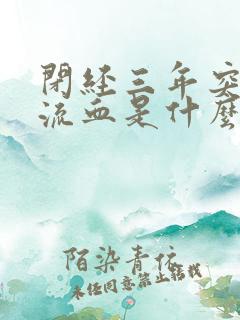 閉經三年突
流血是什麼
陌染青依
未经同意禁止转载